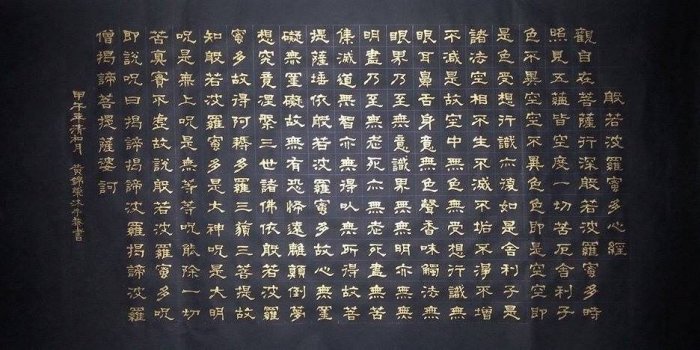 般若波羅蜜多心經
觀自在菩薩行深般若波羅蜜多時
照見五蘊皆空度一切苦厄舍利子
色不異空空不異色色即是空空即
是色受想行識亦復如是舍利子是
諸法空相不生不滅不垢不淨不增
不減是故空中無色無受想行識無
眼耳鼻舌身意無色聲香味觸法無
眼界乃至無意識界無無明亦無無
明盡乃至無老死亦無老死盡無苦
集滅道無智亦無得以無所得故菩
提薩埵依般若波羅蜜多故心無罣
礙無罣礙故無有恐怖遠離顛倒夢
想究竟涅槃三世諸佛依般若波羅
蜜多故得阿耨多羅三藐三菩提故
知般若波羅蜜多是大神呪是大明
呪是無上呪是無等等呪能除一切
苦真實不虛故說般若波羅蜜多呪
即說呪曰揭諦揭諦波羅揭諦波羅
僧揭諦菩提薩婆訶
甲午年清和月